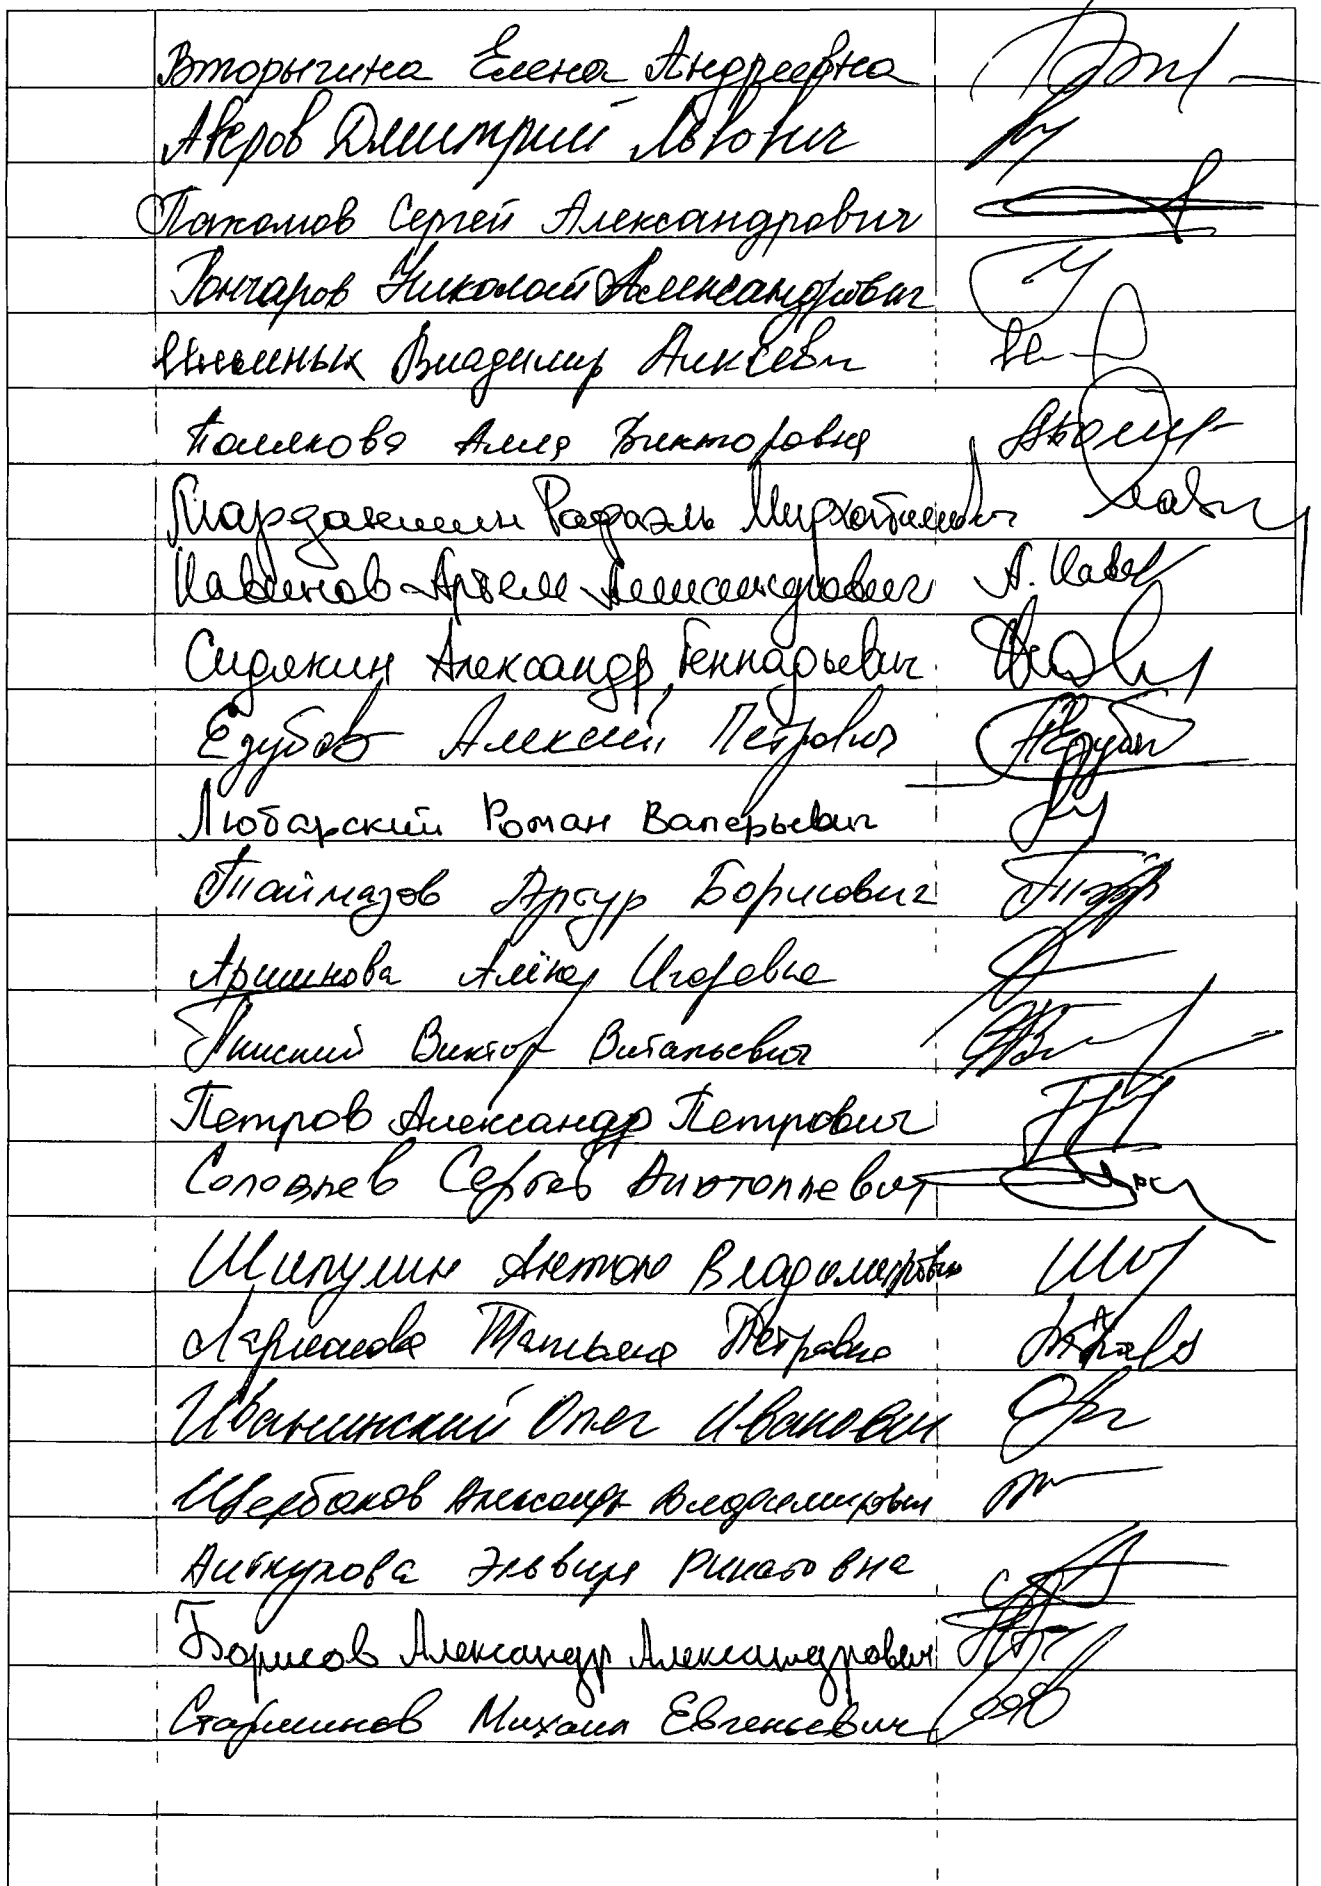 Вторыгина Елена Андреевна
Аверов Дмитрий Львович
Пахомов Сергей Александрович
Гончаров Николай Александрович
Владимир
Полякова Алла Викторовна
Марданшин Рафаэль Мирхатимович
Кавинов Артем Александрович А. Кавин
Сидякин Александр Геннадьевич
Ездубов Алексей Петрович
Любарский Роман Валерьевич
Таймазов Артур Борисович
Аршинова Алёна Игоревна
Пинский Виктор Витальевич
Петров Александр Петрович
Соловьев Сергей Анатольевич
Шипулин Антон Владимирович
Ларионова Татьяна Петровна
Иванинский Олег Иванович
Щербаков Александр Владимирович
Аиткулова Эльвира Ринатовна
Борисов Александр Александрович
Старшинов Михаил Евгеньевич